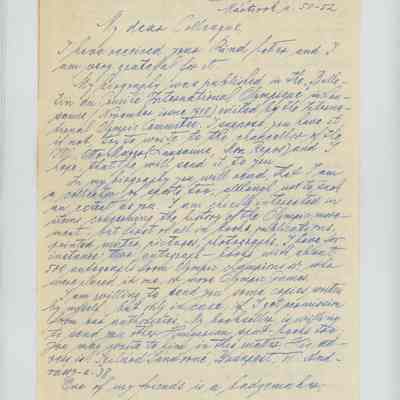 50-52
My dear Colleague
I have received your kind letter and I
am very grateful for it.
My biography was published in the Bulle-
tin du Comité International Olympique, in
(November issue 1958) edited by the Interna-
tional Olympic Committee. I suppose you have it,
if not, try to write to the chancellor of the
Otto Mayer (Lausanne, Mon Repos) and I
hope, that he will send it to you.
In my biography you will read, that I am
a collector of sports too, although not to such
an extent as you. I am chiefly interested in
items, concerning the history of the Olympic move-
ment, but first of all in books, publications,
printed matter, pictures, photographs. I have for
instance two autograph-books with about
500 autographs from Olympic champions or who
were placed in one, or more Olympic games.
I am willing to send you some copies written
by myself, but only in case, if I got permission
from our authorities. A bookseller is willing
to send you other Hungarian sport-books too,
you may write to him in this matter. His ad-
ress is: Roland Budapest, VI. And-
38.
One of my friends is a badgemaker,